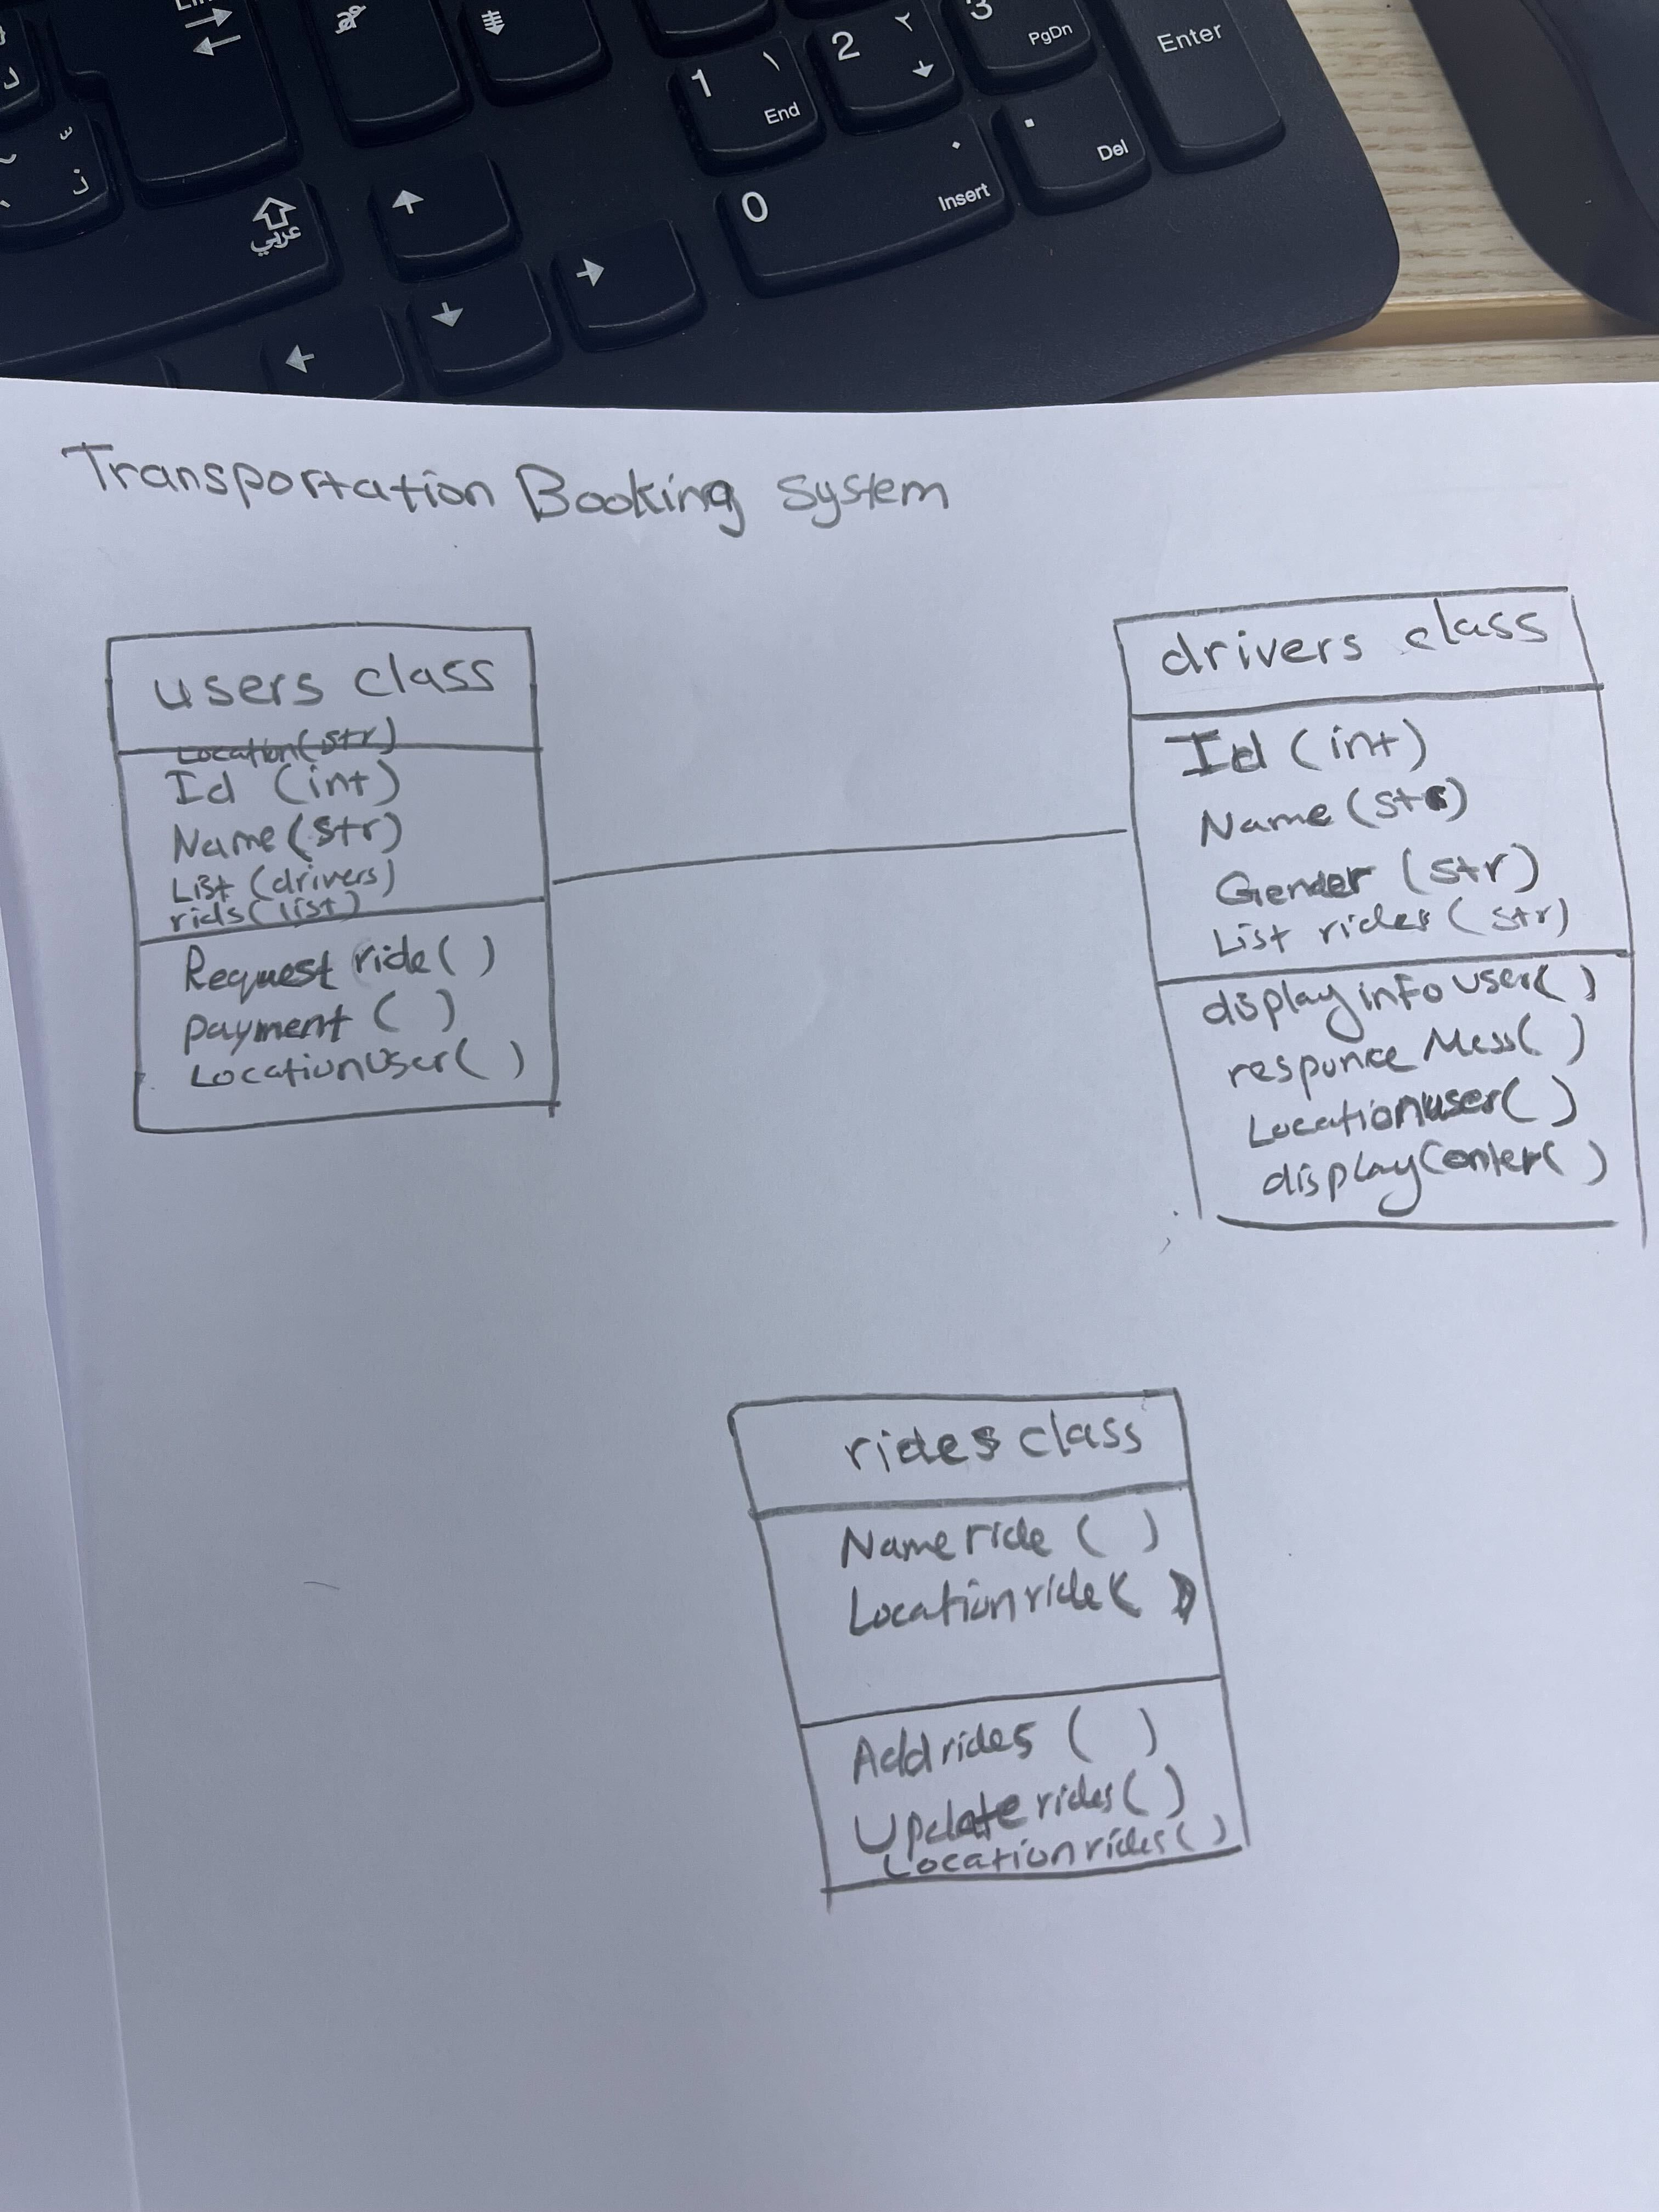 1
١
End
2
٢
3
PgDn
Enter
0
Insert
.
Del
عربي
Transportation Booking System
users class
Location(str)
Id (int)
Name(str)
List (drivers)
rids(list)
Request ride( )
payment ( )
LocationUser( )
drivers class
Id (int)
Name(str)
Gender (str)
List rides(str)
displayinfouser( )
responce Mess( )
Locationuser( )
rides class
Name ride ( )
Locationride( )
Add rides ( )
Update rides( )
Locationrides( )